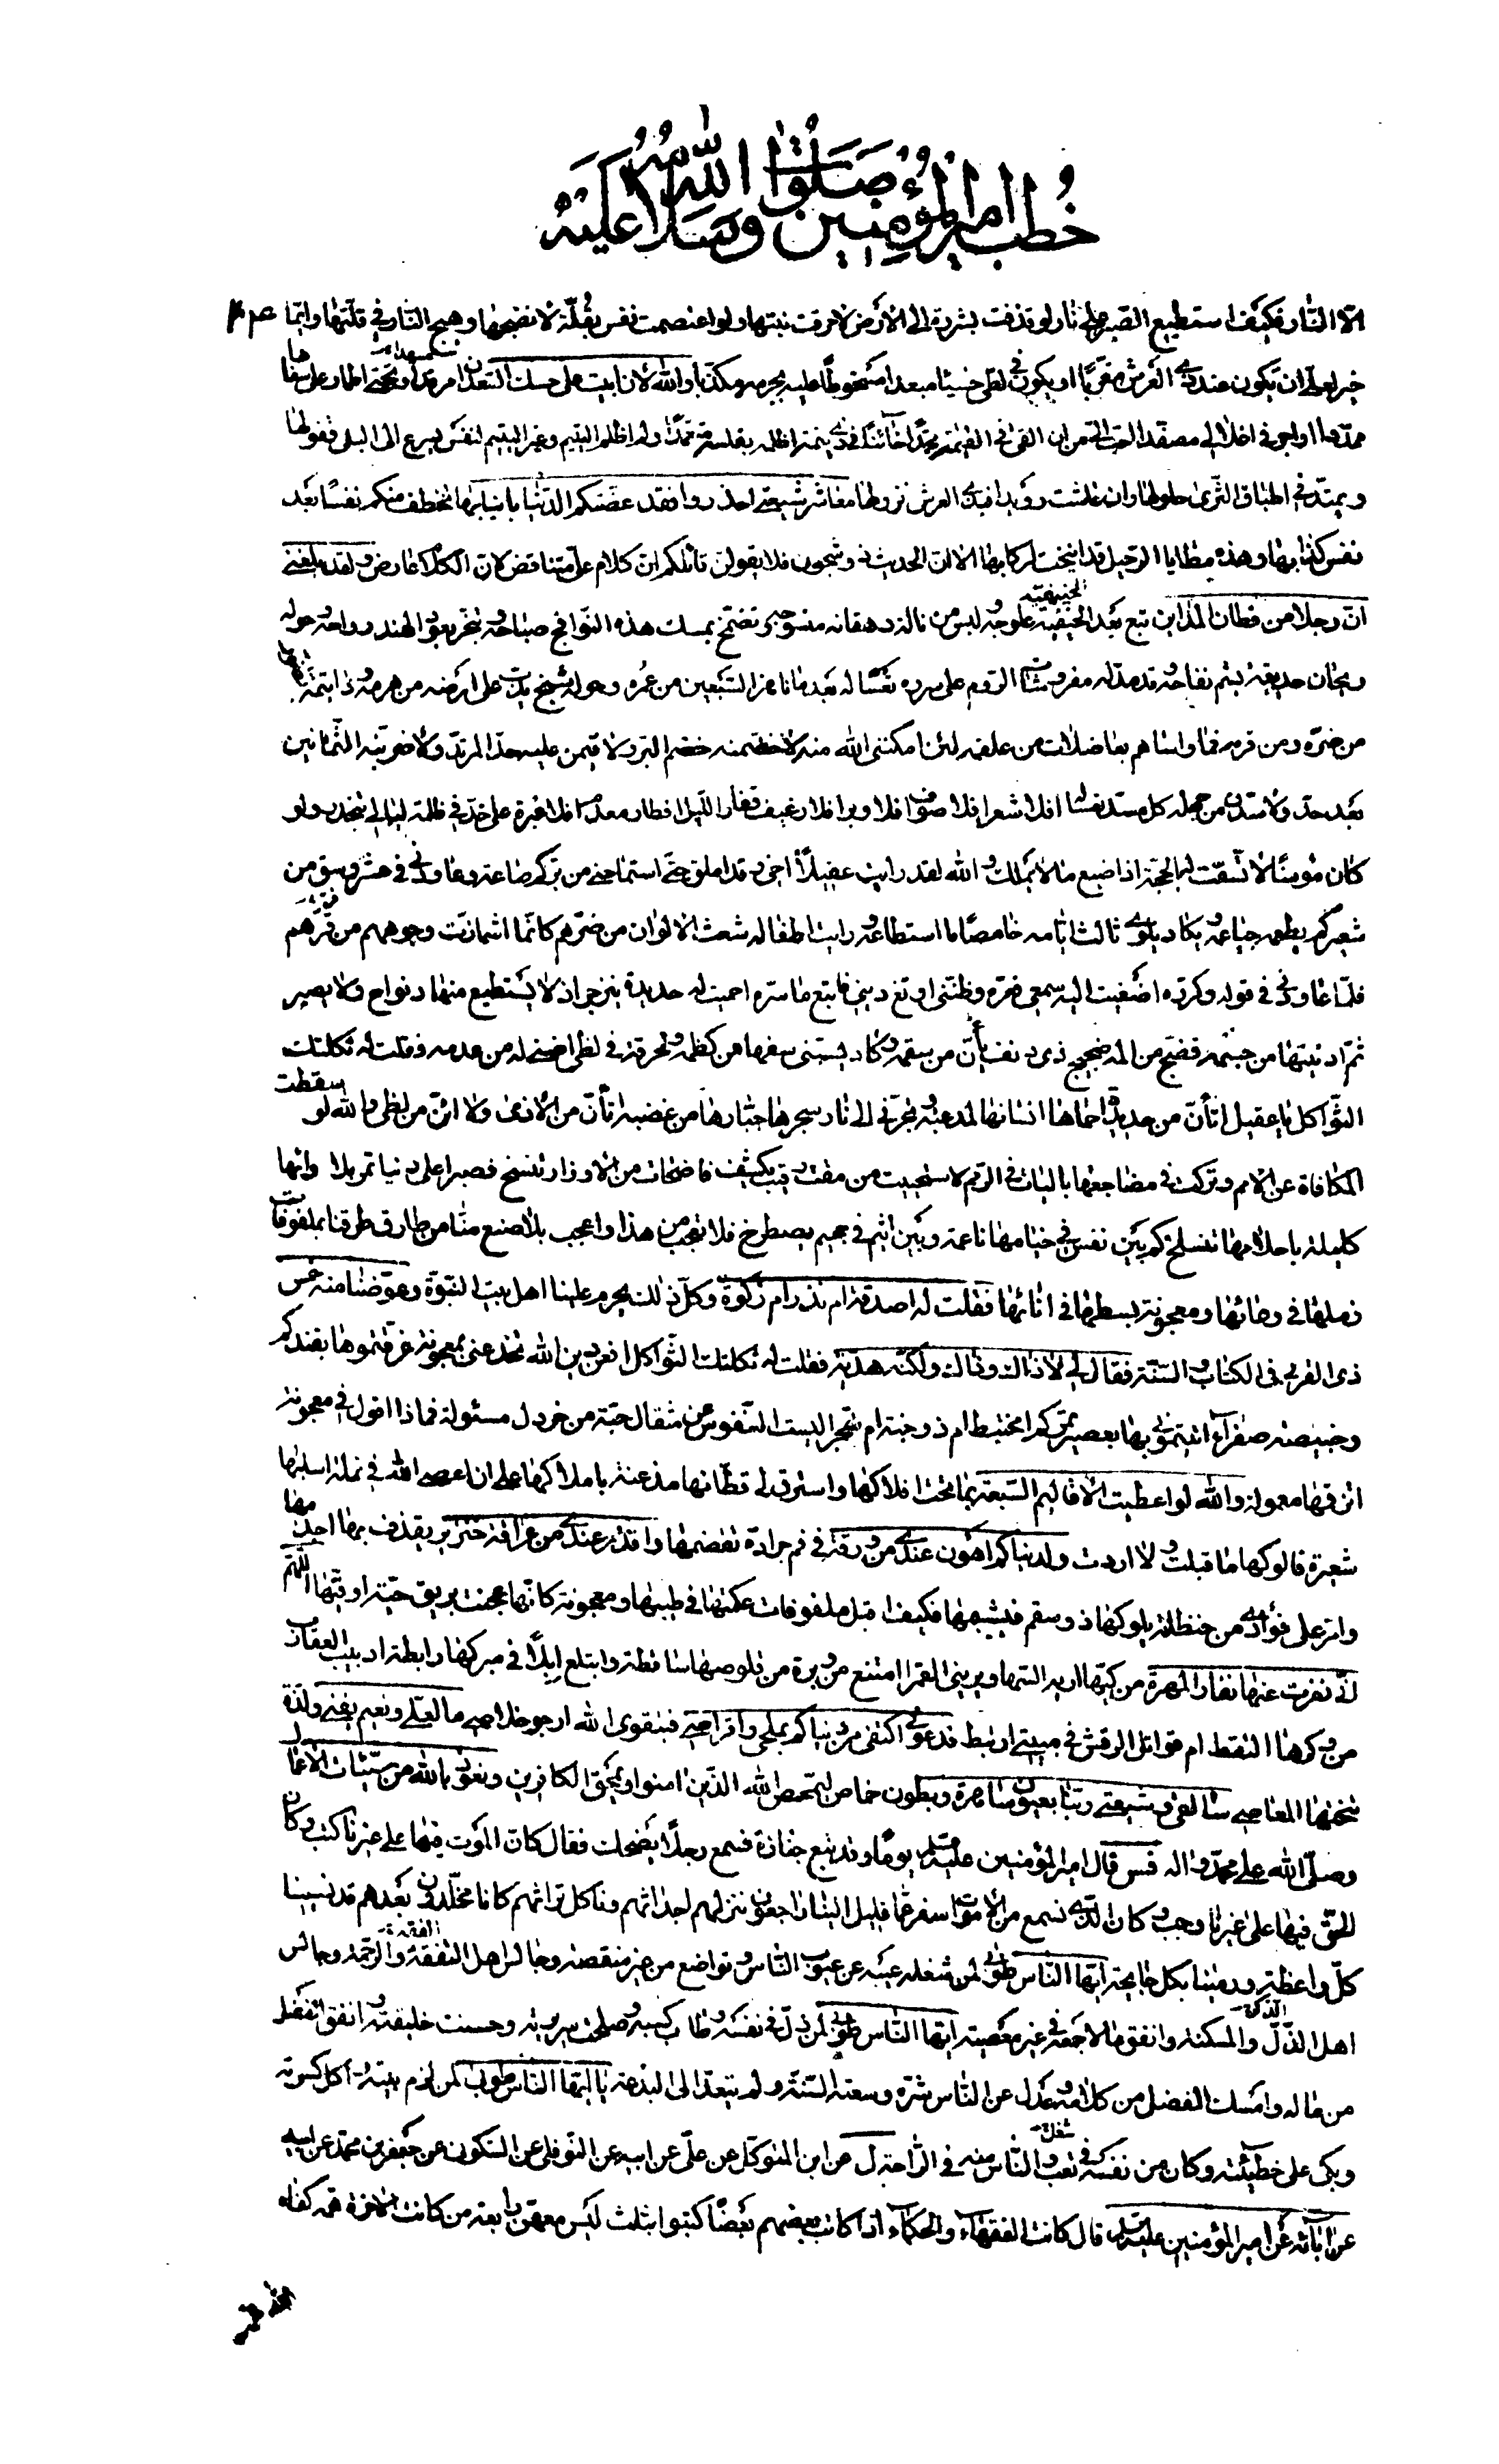 خطب امير المؤمنين صلوات الله وسلامه عليه
الا النار فكيف استطيع الصبر على نار لو قذفت بشررة الى الارض لاحرقت نبتها ولو اعتصمت نفس بقلّة لانضجها وهيج النار في قلّتها وايّما
خير لعلى ان يكون عند ذى العرش مقرّبًا او يكون في لظى خسيئا مبعدا مسخوطًا عليه بجرمه مكذّبا والله لان ابيت على حسك السعدان مرقدا وتحتى اطمار على سفاها
ممدّدا او اجر في اغلالى مصفّدا احبّ الىّ من ان القى في القيمة محمّدًا خائنًا في ذى يتمة اظلمه بفلسة متعمّدًا ولم اظلم اليتيم وغير اليتيم لنفس يسرع الى البلى قفولها
ويمتدّ في اطباق الثرى حلولها وان عاشت رويدا فبذى العرش نزولها معاشر شيعتى احذروا فقد عضّتكم الدنيا بانيابها تخطف منكم نفسًا بعد
نفس كذابها وهذه مطايا الرحيل قد انيخت لركابها الا ان الحديث ذو شجون فلا يقولن قائلكم ان كلام علىّ متناقض لان الكلام عارض ولقد بلغنى
انّ رجلا من قطان المداين تبع بعد الحنيفية علوجه ولبس من نالة دهقانه منسوجه وتضمّخ بمسك هذه النوافج صباحه وتبخّر بعود الهند رواحه وحوله
ريحان حديقة يشم تفاحه وقد مدّ له مفروشات الروم على سرره تعسًا له بعد ما ناهز السبعين من عمره وحوله شيخ يدبّ على ارضه من هرمه وذا يتمة تضوّر
من ضرّه ومن قرمه فما واساهم بفاضلات من علقمه لئن امكننى الله منه لاخضمنه خضم البر ولاقيمن عليه حد المرتدّ ولاضربنه الثمانين
بعد حدّ ولاسدّن من جهله كل مسدّ تعسًا له افلا شعر افلا صوف افلا وبر افلا رغيف قفار الليل افطار معدم افلا عبرة على خدّ في ظلمة ليالى تنحدر ولو
كان مؤمنًا لاتّسقت له الحجّة اذا ضيع ما لا يملك والله لقد رايت عقيلًا اخى وقد املق حتى استماحنى من برّكم صاعه وعاودنى في عشر وسق من
شعيركم يطعمه جياعه ويكاد يلوى ثالث ايامه خامصًا ما استطاعه ورايت اطفاله شعث الالوان من ضرّهم كانّما اشمازّت وجوههم من قرّهم
فلمّا عاودنى في قوله وكرّره اصغيت اليه سمعى فغرّه وظنّنى اوتغ دينى فاتبع ما سرّه احميت له حديدة ينزجر اذ لا يستطيع منها دنوا ولا يصبر
ثمّ ادنيتها من جسمه فضجّ من المه ضجيج ذى دنف يانّ من سقمه وكاد يسبّنى سفها من كظمه ولحرقة في لظى اضنى له من عدمه فقلت له ثكلتك
الثواكل يا عقيل اتأنّ من حديدة احماها انسانها لمدعبه وتجرّنى الى نار سجرها جبّارها من غضبه اتأنّ من الاذى ولا ائنّ من لظى والله لو سقطت
المكافاة عن الامم وتركت في مضاجعها باليات في الرمم لاستحييت من مقت رقيب يكشف فاضحات من الاوزار تنسخ فصبرا على دنيا تمرّ بلاوائها
كليلة باحلامها تنسلخ كم بين نفس في خيامها ناعمة وبين اثيم في جحيم يصطرخ فلا تعجب من هذا واعجب بلا صنع منّا من طارق طرقنا بملفوفات
زمّلها في وعائها ومعجونة بسطها في انائها فقلت له اصدقة ام نذر ام زكوة وكلّ ذلك يحرم علينا اهل بيت النبوّة وعوّضنا منه خمس
ذى القربى في الكتاب والسنّة فقال لى لا ذاك ولا ذاك ولكنه هديّة فقلت له ثكلتك الثواكل افعن دين الله تخدعنى بمعجونة عرّقتموها بقندكم
وخبيصة صفراء اتيتمونى بها بعصير تمركم امختبط ام ذو جنّة ام تهجر اليست النفوس عن مثقال حبّة من خردل مسئولة فماذا اقول في معجونة
اتزقّمها معمولة والله لو اعطيت الاقاليم السبعة بما تحت افلاكها واسترقّ لى قطّانها مذعنة باملاكها على ان اعصى الله في نملة اسلبها
شعيرة فالوكها ما قبلت ولا اردت ولدنياكم اهون عندى من ورقة في فم جرادة تقضمها واقذر عندى من عراقة خنزير يقذف بها اجذمها
وامرّ على فؤادى من حنظلة يلوكها ذو سقم فيبشمها فكيف اقبل ملفوفات عكمتها في طيها ومعجونة كانّها عجنت بريق حيّة او قيئها اللهمّ
انّى نفرت عنها نفار المهرة من كيّها اريه السها ويرينى القمر ا امتنع من وبرة من قلوصها ساقطة وابتلع ابلًا في مبركها رابطة ادبيب العقارب
من وكرها التقط ام قواتل الرقش في مبيتى ارتبط فدعونى اكتفى من دنياكم بملحى واقراصى فبتقوى الله ارجو خلاصى ما لعلىّ ونعيم يفنى ولذّة
تنحتها المعاصى سالقى وشيعتى ربّنا بعيون ساهرة وبطون خماص ليمحّص الله الذين امنوا ويمحق الكافرين ونعوذ بالله من سيّئات الاعمال
وصلّى الله على محمّد واله قس قال امير المؤمنين عليه السلم يومًا وقد تبع جنازة فسمع رجلًا يضحك فقال كانّ الموت فيها على غيرنا كتب وكان
الحقّ فيها على غيرنا وجب وكان الذى نسمع من الاموات سفر عمّا قليل الينا راجعون ننزلهم اجداثهم وناكل تراثهم كانا مخلّدون بعدهم قد نسينا
كلّ واعظة ورمينا بكل جايحة ايّها الناس طوبى لمن شغله عيبه عن عيوب الناس وتواضع من غير منقصة وجالس اهل التفقّه الفقه والرحمة وجالس
اهل الذلّ الذكر والمسكنة وانفق مالا جمعه في غير معصية ايّها الناس طوبى لمن ذلّ في نفسه وطاب كسبه وصلحت سريرته وحسنت خليقته وانفق الفضل
من ماله وامسك الفضل من كلامه وعدل عن الناس شرّه وسعته السنّة ولم يتعدّ الى البدعة يا ايّها الناس طوبى لمن لزم بيته واكل كسرته
وبكى على خطيئته وكان من نفسه في تعب شغل والناس منه في الراحة ل عن ابن المتوكّل عن علىّ عن ابيه عن النوفلى عن السكونى عن جعفر بن محمّد عن ابيه
عن ابائه عن امير المؤمنين عليه السلم قال كانت الفقهاء والحكماء اذا كاتب بعضهم بعضًا كتبوا بثلث ليس معهنّ رابعة من كانت الاخرة همّه كفاه